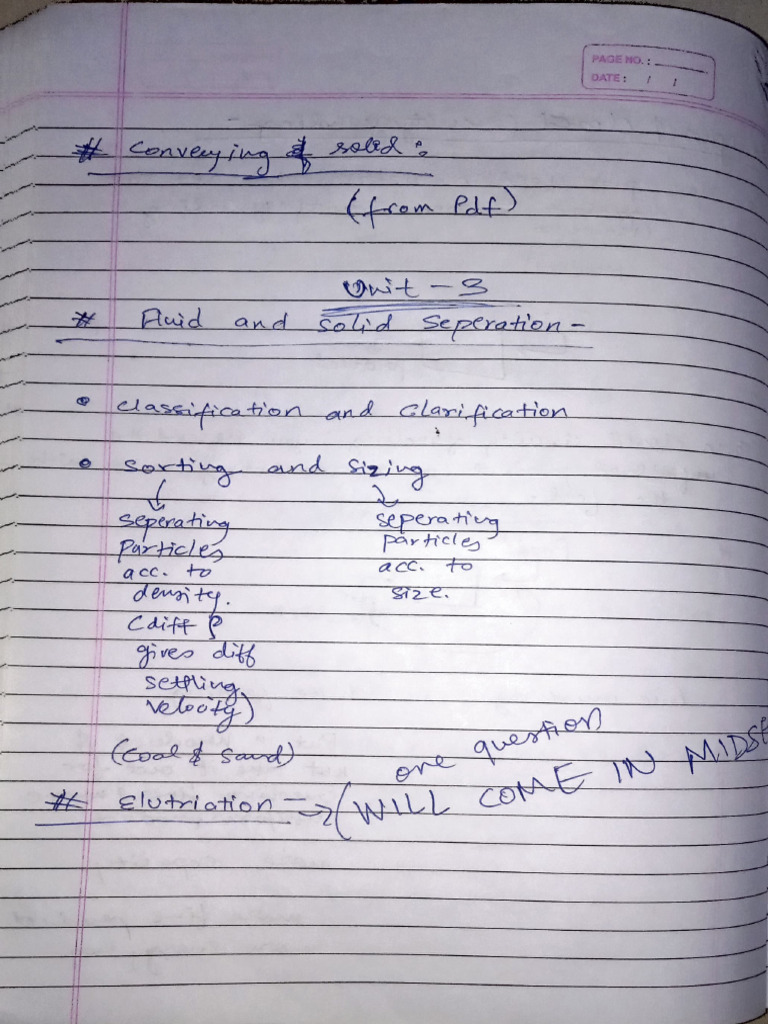 PAGE NO. :
DATE : / /
# Conveying of solid :
(from Pdf)
Unit - 3
# Fluid and solid seperation -
• classification and Clarification
• sorting and sizing
seperating particles acc. to density.
(diff ρ gives diff settling velocity)
(Coal & Sand)
seperating particles acc. to size.
# Elutriation - → (one question
WILL COME IN MIDSE